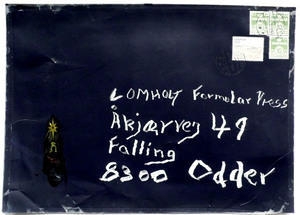 LOMHOLT Formular Press
Åkjærvej 49
Falling
8300 Odder